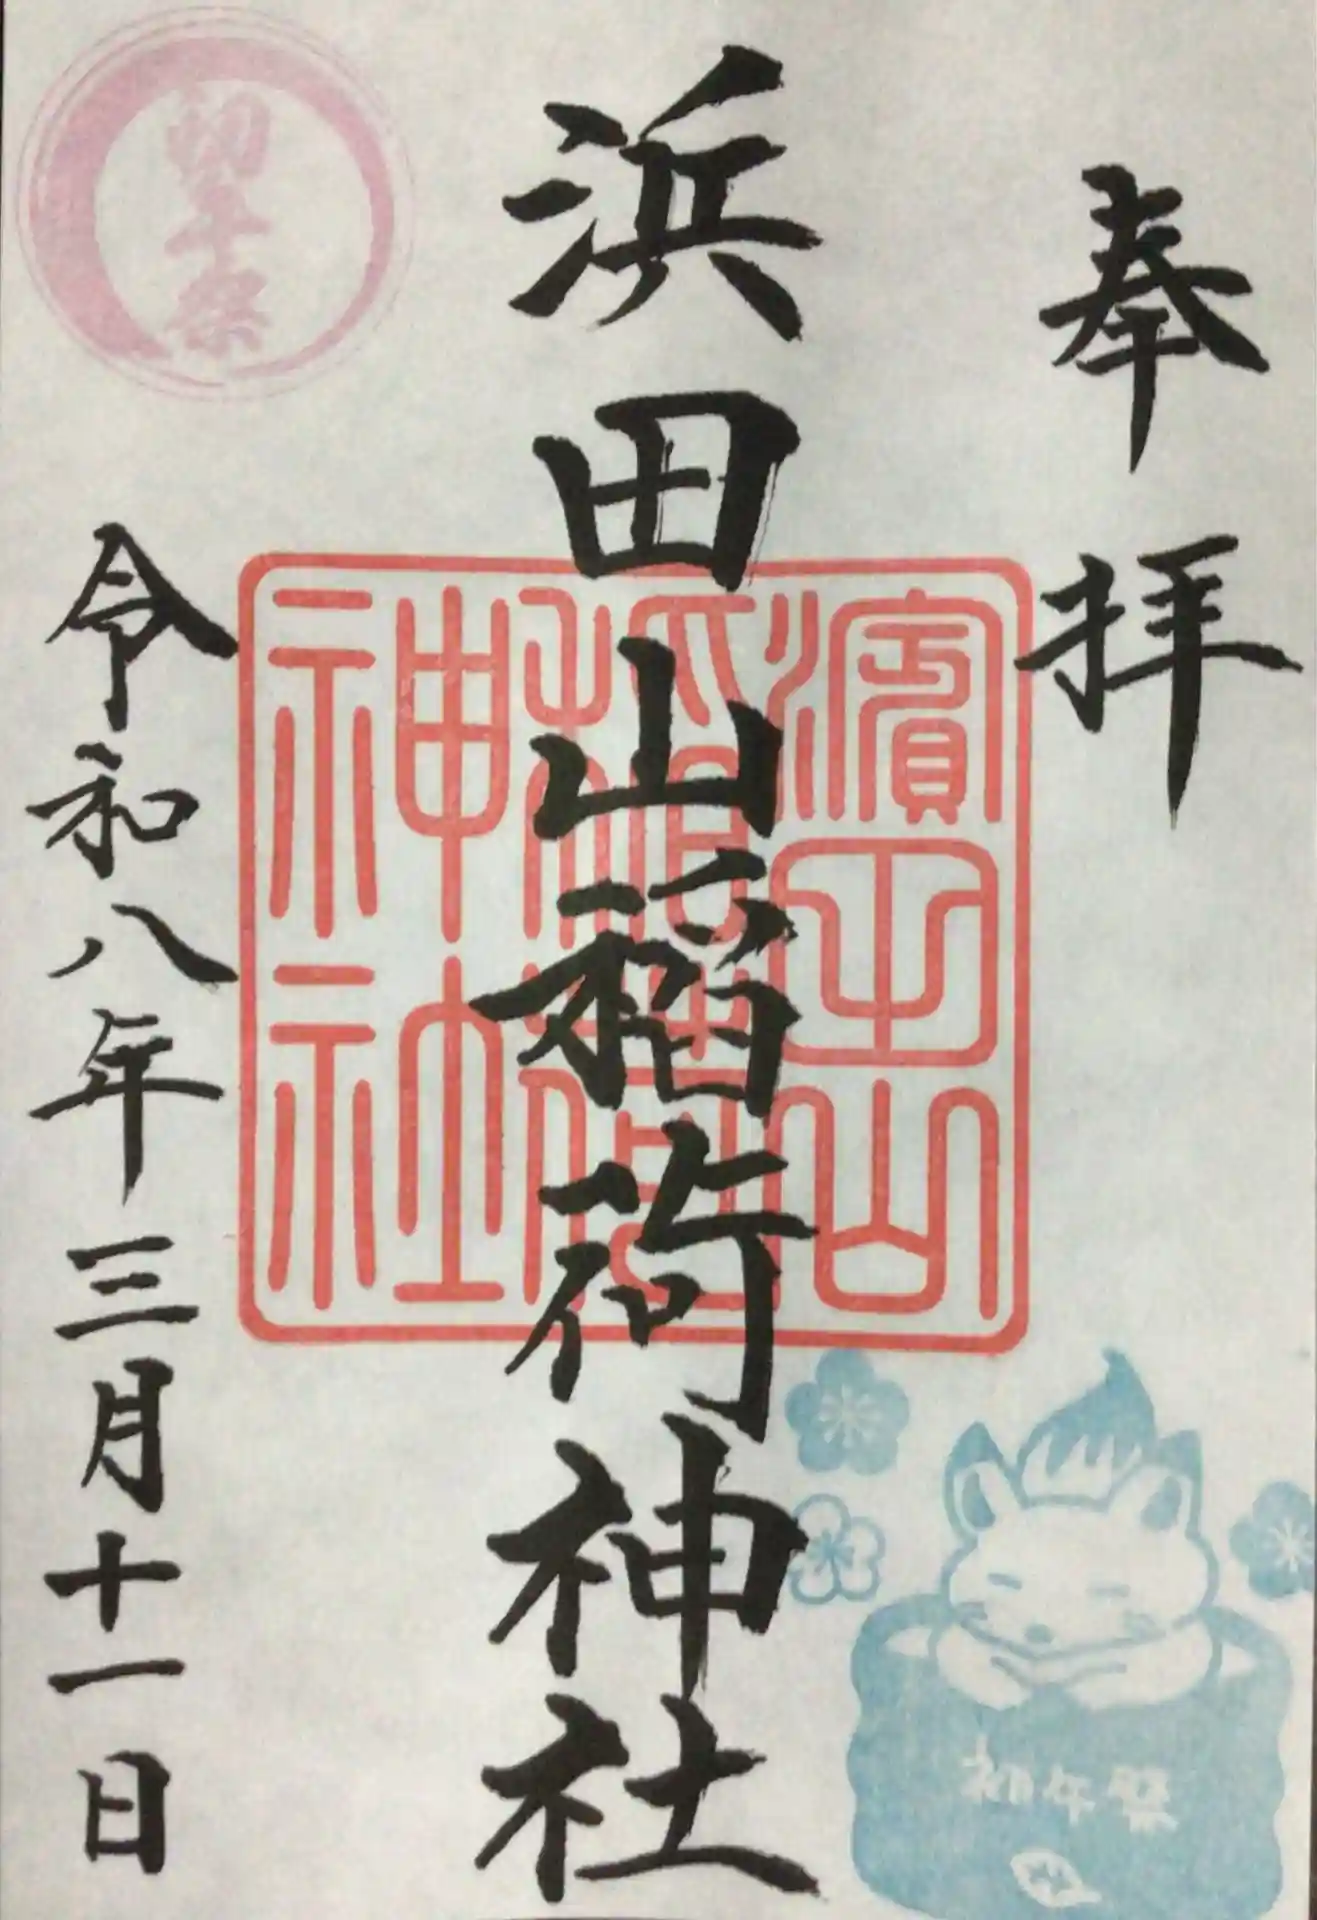 奉拝
浜田山稲荷神社
濱田山
稲荷
神社
令和八年三月十一日
初午祭
初午祭